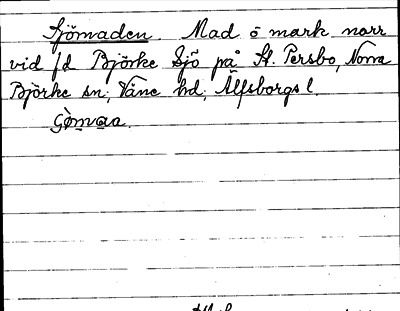 Sjömaden. Mad ö mark norr
vid f d Björke Sjö på St. Persbo, Norra
Björke sn, Väne hd, Älfsborgs l.